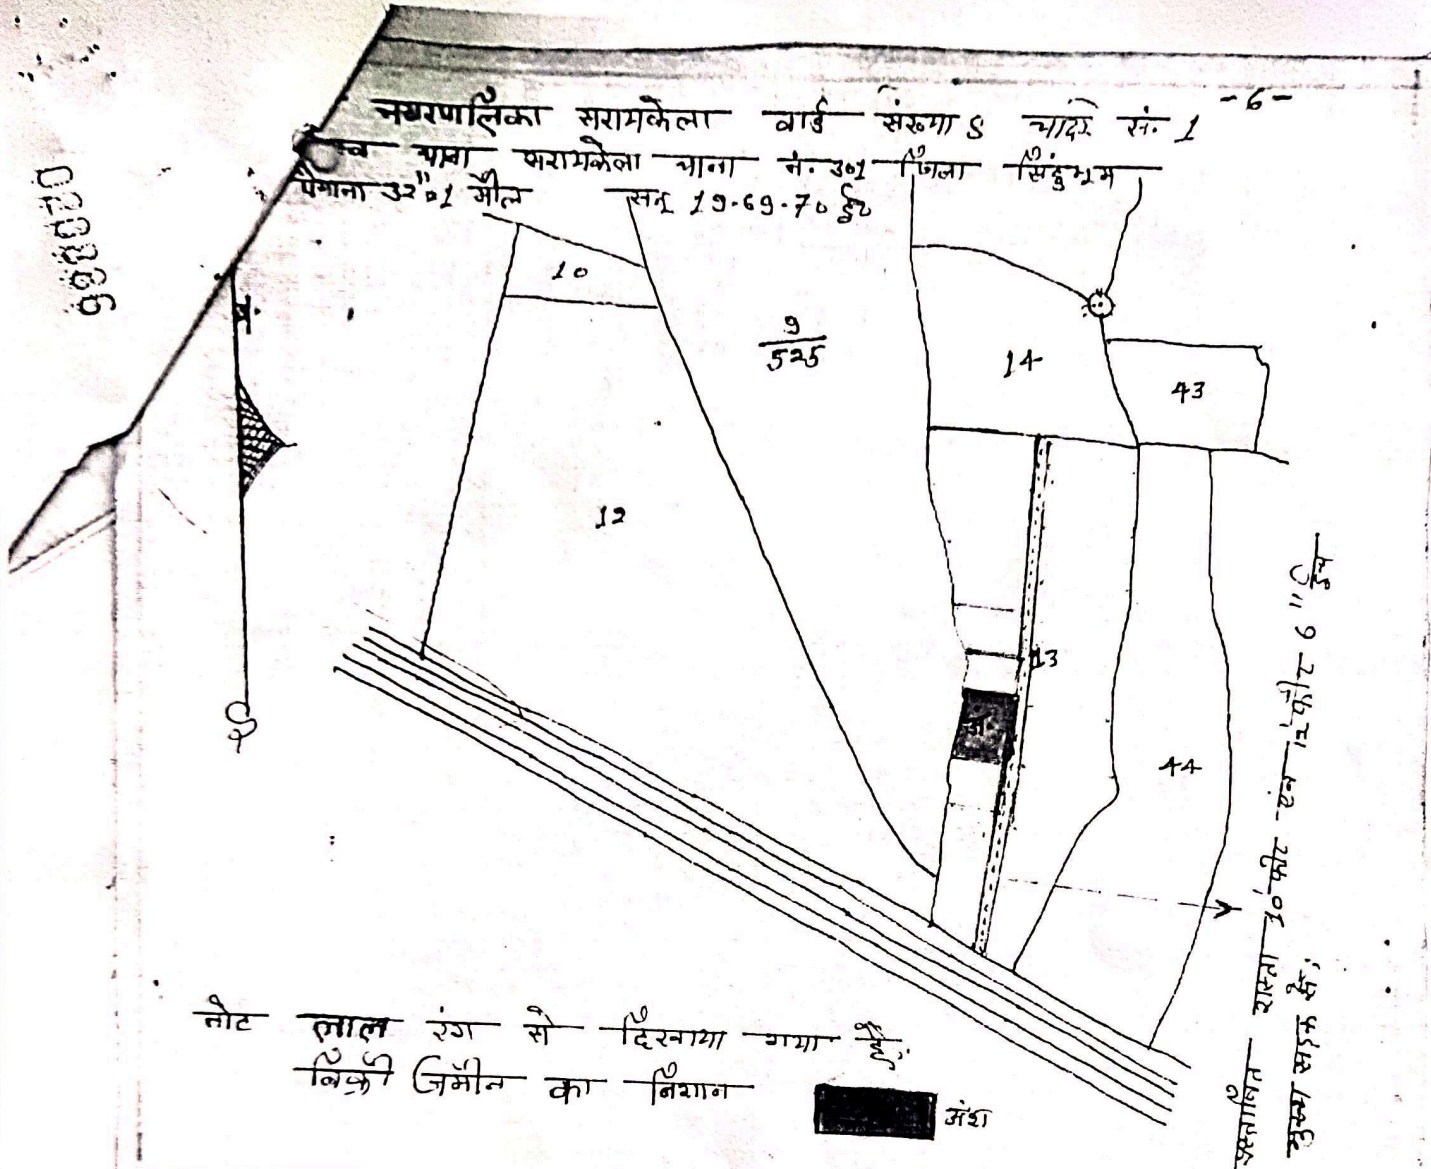 -6-
नगरपालिका सरायकेला वार्ड संख्या 5 चादर सं. 1
थाना सरायकेला थाना नं. 301 जिला सिंहभूम
पैमाना 32"=1 मील सन् 19.69.70 ई०
10
9/525
14
43
12
13
अं.
44
उ.
द
प्रस्तावित रास्ता 10 फीट एवं 12 फीट 6" इंच
मुख्य सड़क है।
नोट लाल रंग से दिखाया गया है।
बिक्री जमीन का निशान
अंश